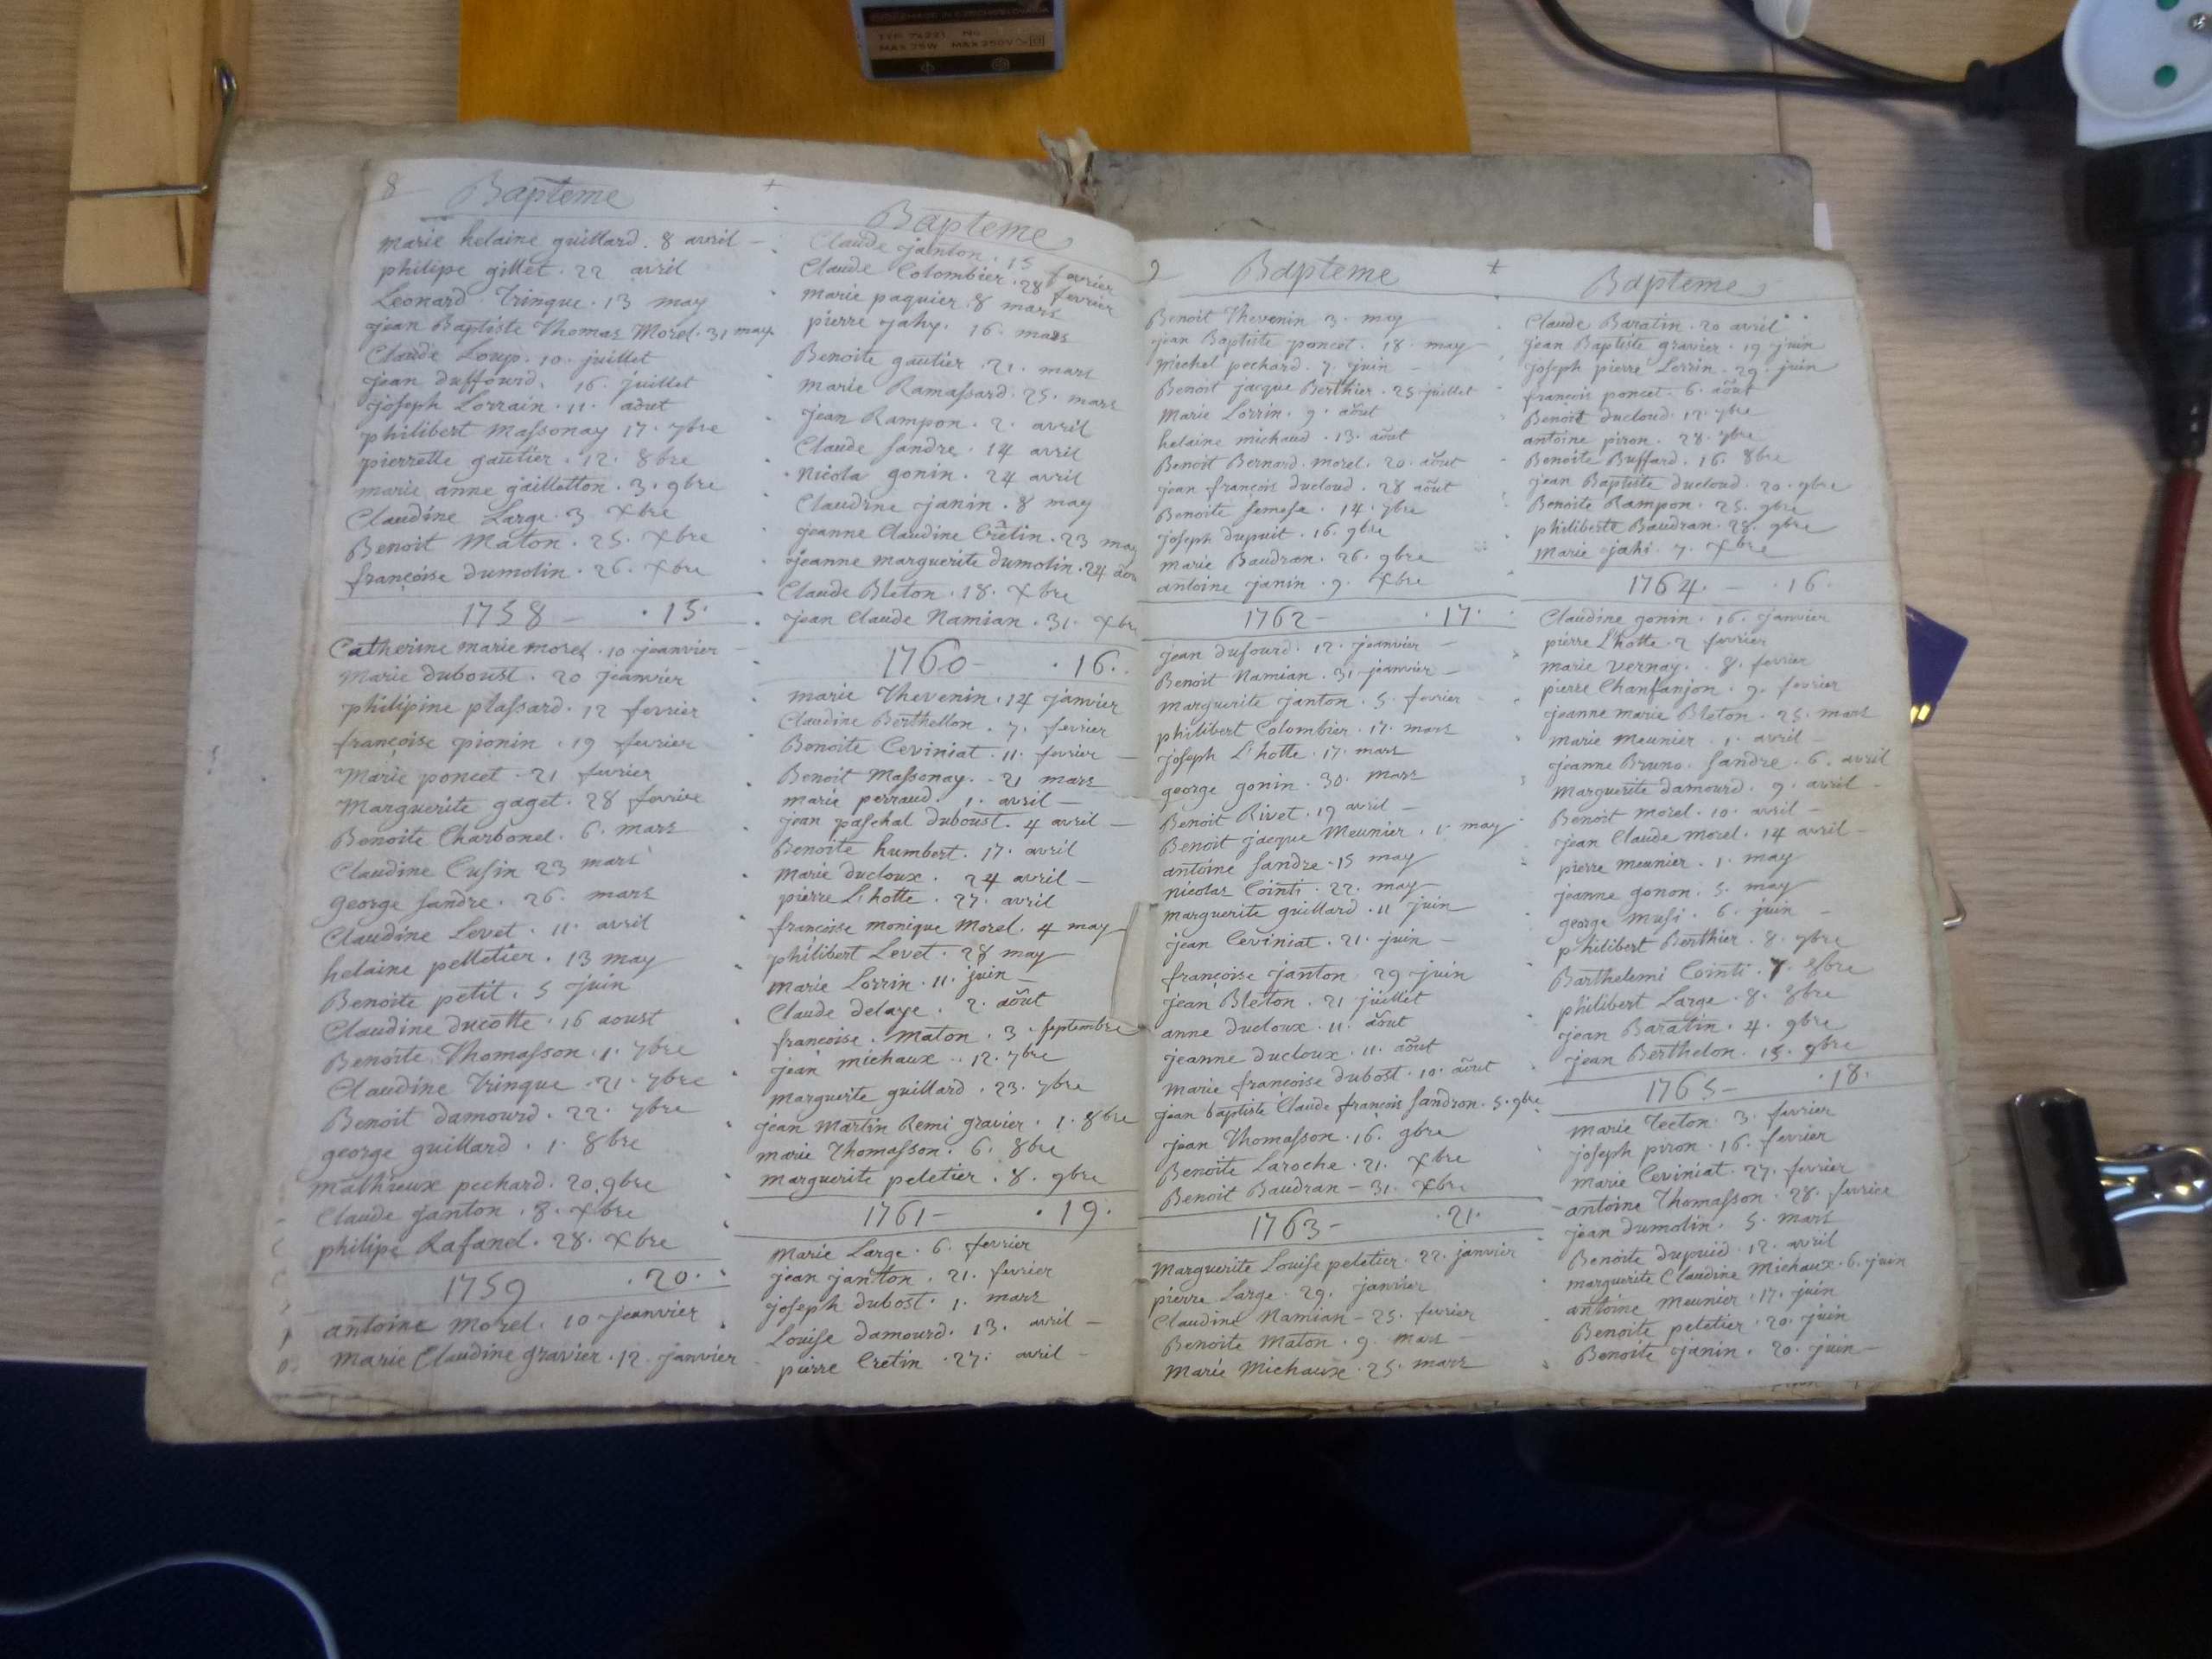 MAX 25W MAX 250V
8 Bapteme
marie helaine guillard. 8 avril
philipe gillet. 22 avril
Leonard Tringue. 13 may
jean Baptiste Thomas Morel. 31 may
Claude Loup. 10. juillet
jean duffourd. 16. juillet
joseph Lorrain. 11. aout
philibert Massonay 17. 7bre
pierrette gautier. 12. 8bre
marie anne gailletton. 3. 9bre
Claudine Large. 3 Xbre
Benoit Maton. 25. Xbre
françoise dumolin. 26. Xbre
1758 - . 15.
Catherine marie morel. 10 jeanvier
Marie duboust. 20 jeanvier
philipine plassard. 12 fevrier
françoise pionin. 19 fevrier
Marie poncet. 21 fevrier
Marguerite gaget. 28 fevrier
Benoite Charbonel. 6. mars
Claudine Cusin 23 mars
george sandre. 26. mars
Claudine Levet. 11. avril
helaine pelletier. 13 may
Benoite petit. 5 juin
Claudine ducotte. 16 aoust
Benoite Thomasson. 1. 7bre
Claudine Tringue. 21. 7bre
Benoit damourd. 22. 7bre
george guillard. 1. 8bre
mathieux pechard. 20. 9bre
Claude janton. 8. Xbre
philipe Rafanel. 28. Xbre
1759 . 20.
antoine morel. 10 jeanvier
Marie Claudine gravier. 12. janvier
Bapteme
Claude janton. 15 fevrier
Claude Colombier. 28 fevrier
marie paquier. 8 mars
pierre jahy. 16. mars
Benoite gautier. 21. mars
marie Ramassard. 25. mars
jean Rampon. 2. avril
Claude sandre. 14 avril
Nicola gonin. 24 avril
Claudine janin. 8 may
jeanne Claudine Cretin. 23 may
jeanne marguerite dumolin. 24 aou
Claude Bleton. 18. Xbre
jean Claude Namian. 31. Xbre
1760 - . 16.
marie Thevenin. 14 janvier
Claudine Berthellon. 7. fevrier
Benoite Ceviniat. 11. fevrier
Benoit Massonay. 21 mars
marie perraud. 1. avril
jean paschal duboust. 4 avril
Benoite humbert. 17. avril
Marie ducloux. 24 avril
pierre L'hotte. 27. avril
francoise monique Morel. 4 may
philibert Levet. 28 may
Marie Lorrin. 11. juin
Claude delaye. 2. août
francoise. Maton. 3. septembre
jean michaux. 12. 7bre
Marguerite guillard. 23. 7bre
jean Martin Remi gravier. 1. 8bre
marie Thomasson. 6. 8bre
Marguerite peletier. 8. 9bre
1761 - . 19.
Marie Large. 6. fevrier
jean janton. 21. fevrier
joseph dubost. 1. mars
Louise damourd. 13. avril
pierre Cretin. 27. avril
9 Bapteme
Benoit Thevenin 3. may
jean Baptiste poncet. 18. may
Michel pechard. 7. juin
Benoit jacque Berthier. 25. juillet
Marie Lorrin. 9. août
helaine michaud. 13. août
Benoit Bernard. morel. 20. août
jean françois ducloud. 28 août
Benoite semese. 14. 7bre
joseph dupuit. 16. 9bre
marie Baudran. 26. 9bre
antoine janin. 9. Xbre
1762 - . 17.
jean dufourd. 12. jeanvier
Benoit Namian. 31. jeanvier
marguerite janton. 5. fevrier
philibert Colombier. 17. mars
joseph L'hotte. 17. mars
george gonin. 30. mars
Benoit Rivet. 19 avril
Benoit jacque Meunier. 1. may
antoine sandre. 15 may
nicolas Cointi. 22. may
Marguerite guillard. 11 juin
jean Ceviniat. 21. juin
françoise janton. 29 juin
jean Bleton. 21 juillet
anne ducloux. 11. août
jeanne ducloux. 11. août
Marie françoise dubost. 10. août
jean baptiste Claude françois sandron. 5. 9bre
jean Thomasson. 16. 9bre
Benoite Laroche. 21. Xbre
Benoit Baudran - 31. Xbre
1763 - . 21.
Marguerite Louise peletier. 22. janvier
pierre Large. 29. janvier
Claudine Namian - 25. fevrier
Benoite Maton. 9. mars
Marie Michaux. 25. mars
Bapteme
Claude Baratin. 20 avril
jean Baptiste gravier. 19 juin
joseph pierre Lorrin. 29. juin
françois poncet. 6. août
Benoit ducloud. 17. 7bre
antoine piron. 28. 7bre
Benoite Buffard. 16. 8bre
jean Baptiste ducloud. 20. 9bre
Benoite Rampon. 25. 9bre
philiberte Baudran. 28. 9bre
Marie jahi. 7. Xbre
1764. - . 16.
Claudine gonin. 16. janvier
pierre L'hotte. 2 fevrier
marie vernay. 8. fevrier
pierre Chanfanjon. 9. fevrier
jeanne marie Bleton. 25. mars
Marie Meunier. 1. avril
jeanne Bruno. sandre. 6. avril
Marguerite damourd. 9. avril
Benoit morel. 10. avril
jean Claude morel. 14 avril
pierre meunier. 1. may
jeanne gonon. 5. may
george musi. 6. juin
philibert Berthier. 8. 7bre
Barthelemi Cointi. 7. 8bre
philibert Large. 8. 8bre
jean Baratin. 4. 9bre
jean Berthelon. 15. 9bre
1765 - . 18.
Marie Tecton. 3. fevrier
joseph piron. 16. fevrier
Marie Ceviniat. 27. fevrier
antoine Thomasson. 28. fevrier
jean dumolin. 5. mars
Benoite dupuid. 12. avril
marguerite Claudine Michaux. 6. juin
antoine Meunier. 17. juin
Benoite peletier. 20. juin
Benoite janin. 20. juin